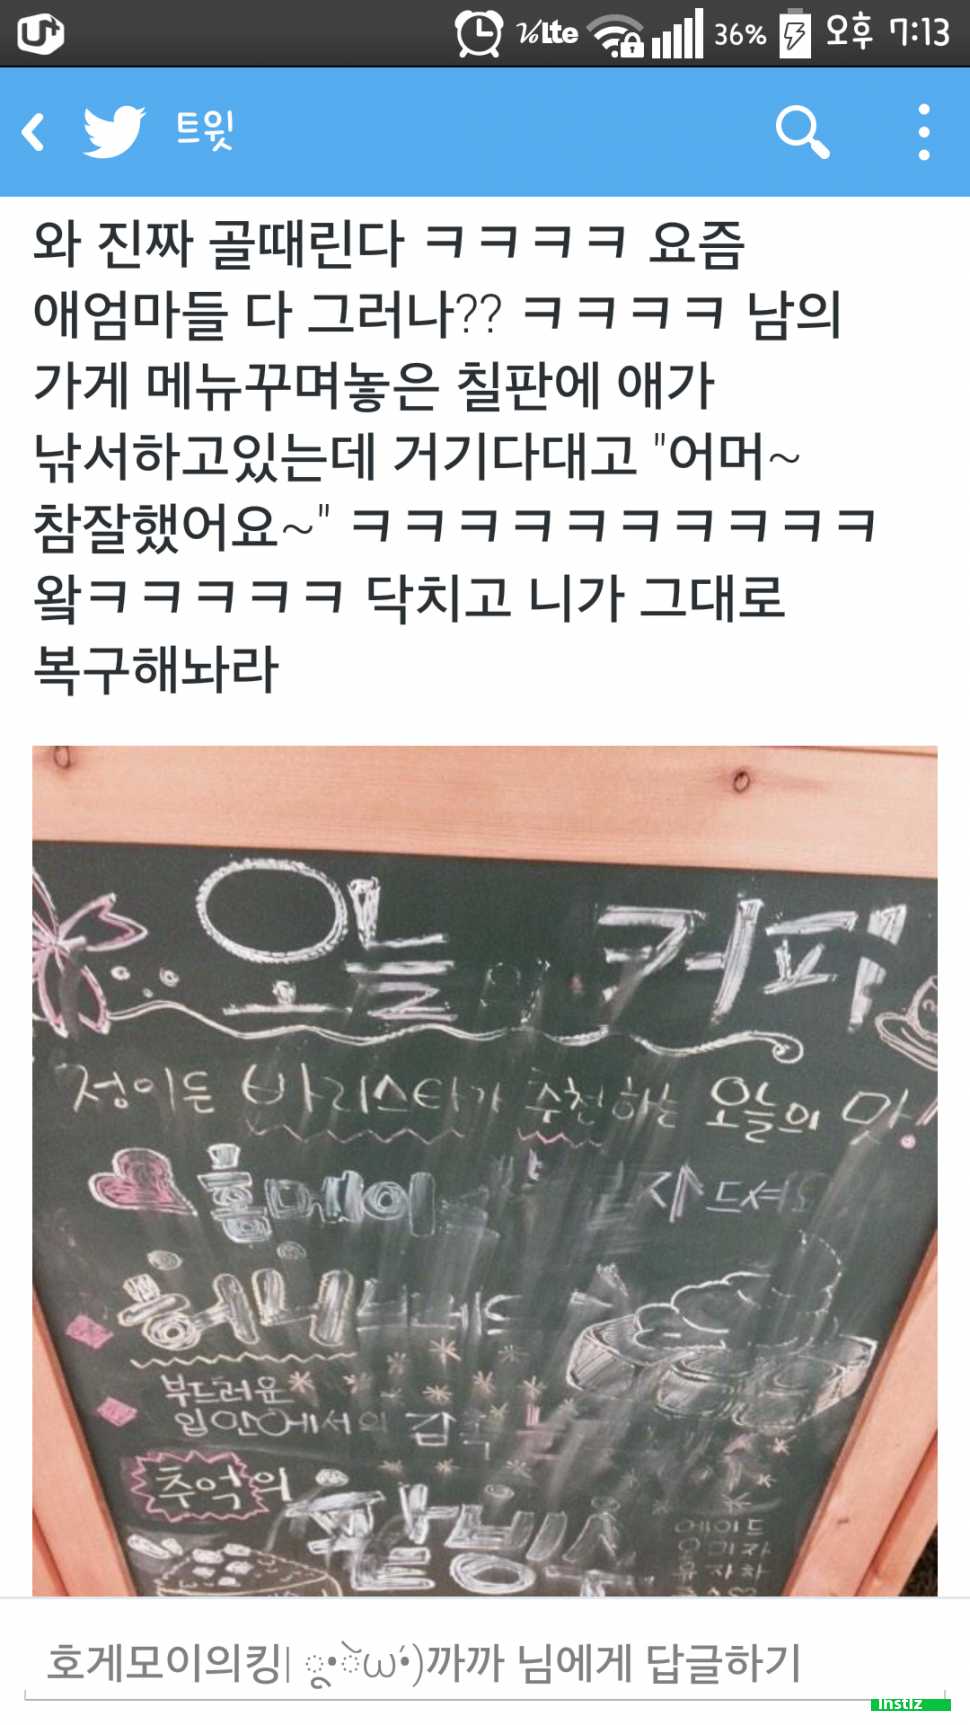 U+ Lte 36% 오후 7:13
트윗
와 진짜 골때린다 ㅋㅋㅋㅋ 요즘
애엄마들 다 그러나?? ㅋㅋㅋㅋ 남의
가게 메뉴꾸며놓은 칠판에 애가
낚서하고있는데 거기다대고 "어머~
참잘했어요~" ㅋㅋㅋㅋㅋㅋㅋㅋㅋㅋ
왘ㅋㅋㅋㅋㅋ 닥치고 니가 그대로
복구해놔라
오늘 커피
정이든 바리스타가 추천하는 오늘의 맛!
홈메이 드셔요
허니브레드
부드러운
입안에서의 감촉
추억의
팥빙수
에이드
오미자
유자차
호게모이의킹| ू•ૅω•́)까까 님에게 답글하기
instiz